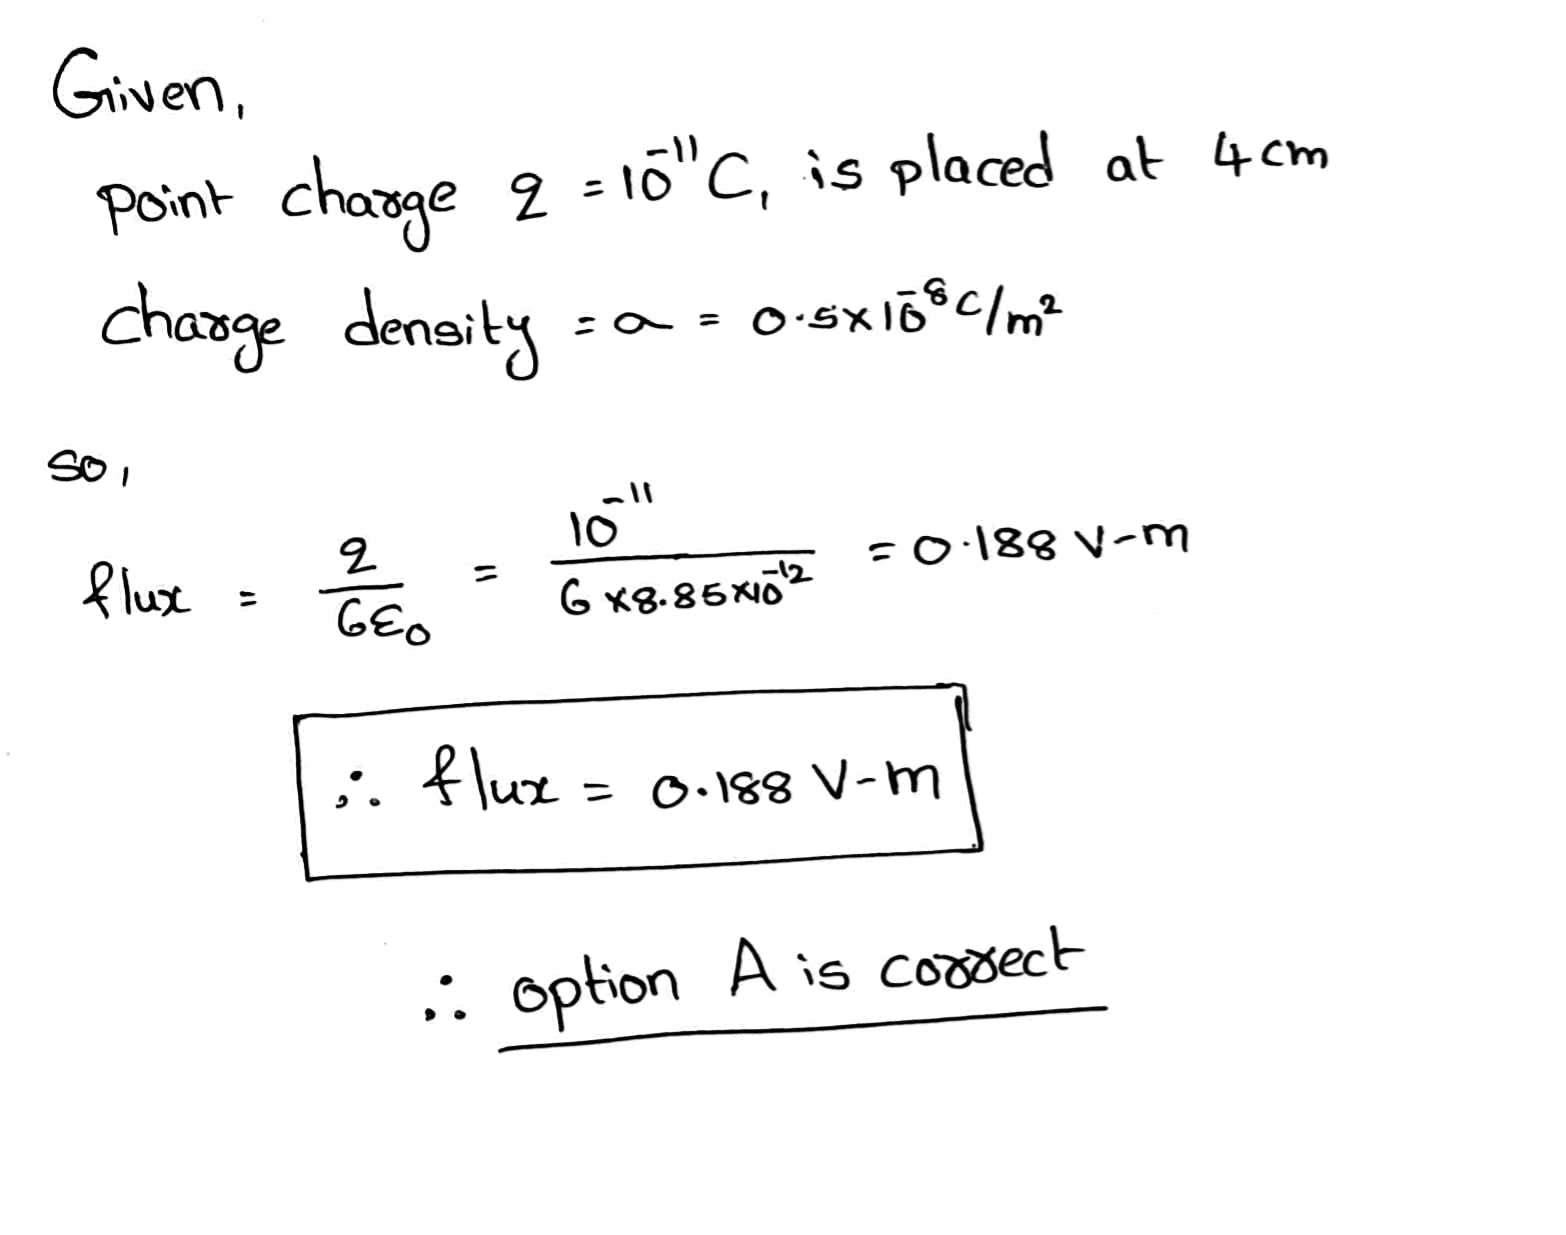 Given,
point charge q = 10⁻¹¹ C, is placed at 4cm
charge density = a = 0.5×10⁻⁸ C/m²
so,
flux = q/6ε₀ = 10⁻¹¹/6×8.85×10⁻¹² = 0.188 V-m
∴ flux = 0.188 V-m
∴ option A is correct